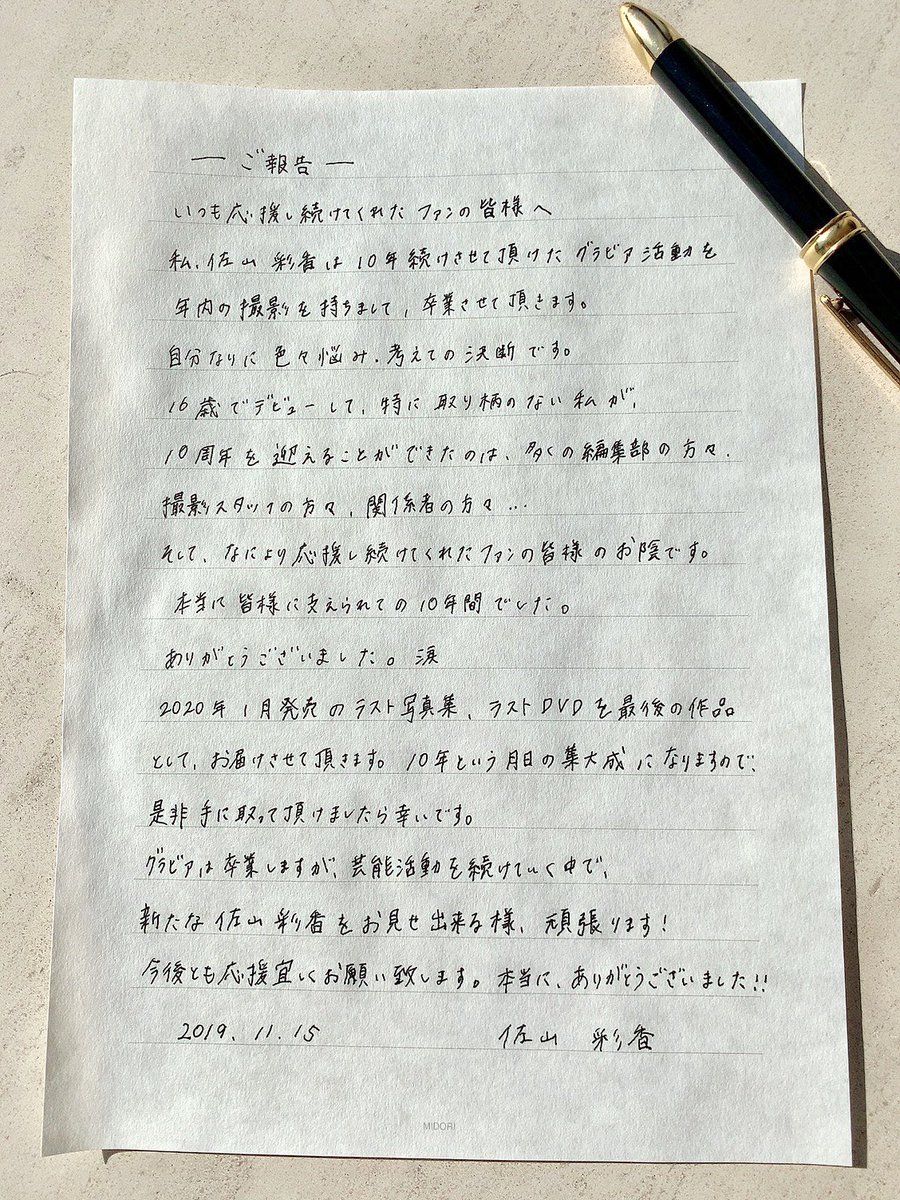 ― ご報告 ―
いつも応援し続けてくれたファンの皆様へ
私、佐山 彩香は10年続けさせて頂けたグラビア活動を
年内の撮影を持ちまして、卒業させて頂きます。
自分なりに色々悩み、考えての決断です。
16歳でデビューして、特に取り柄のない私が、
10周年を迎えることができたのは、多くの編集部の方々、
撮影スタッフの方々、関係者の方々…
そして、なにより応援し続けてくれたファンの皆様のお陰です。
本当に皆様に支えられての10年間でした。
ありがとうございました。涙
2020年1月発売のラスト写真集、ラストDVDを最後の作品
として、お届けさせて頂きます。10年という月日の集大成になりますので、
是非手に取って頂けましたら幸いです。
グラビアは卒業しますが、芸能活動を続けていく中で、
新たな佐山彩香をお見せ出来る様、頑張ります!
今後とも応援宜しくお願い致します。本当に、ありがとうございました!!
2019.11.15 佐山 彩香
MIDORI